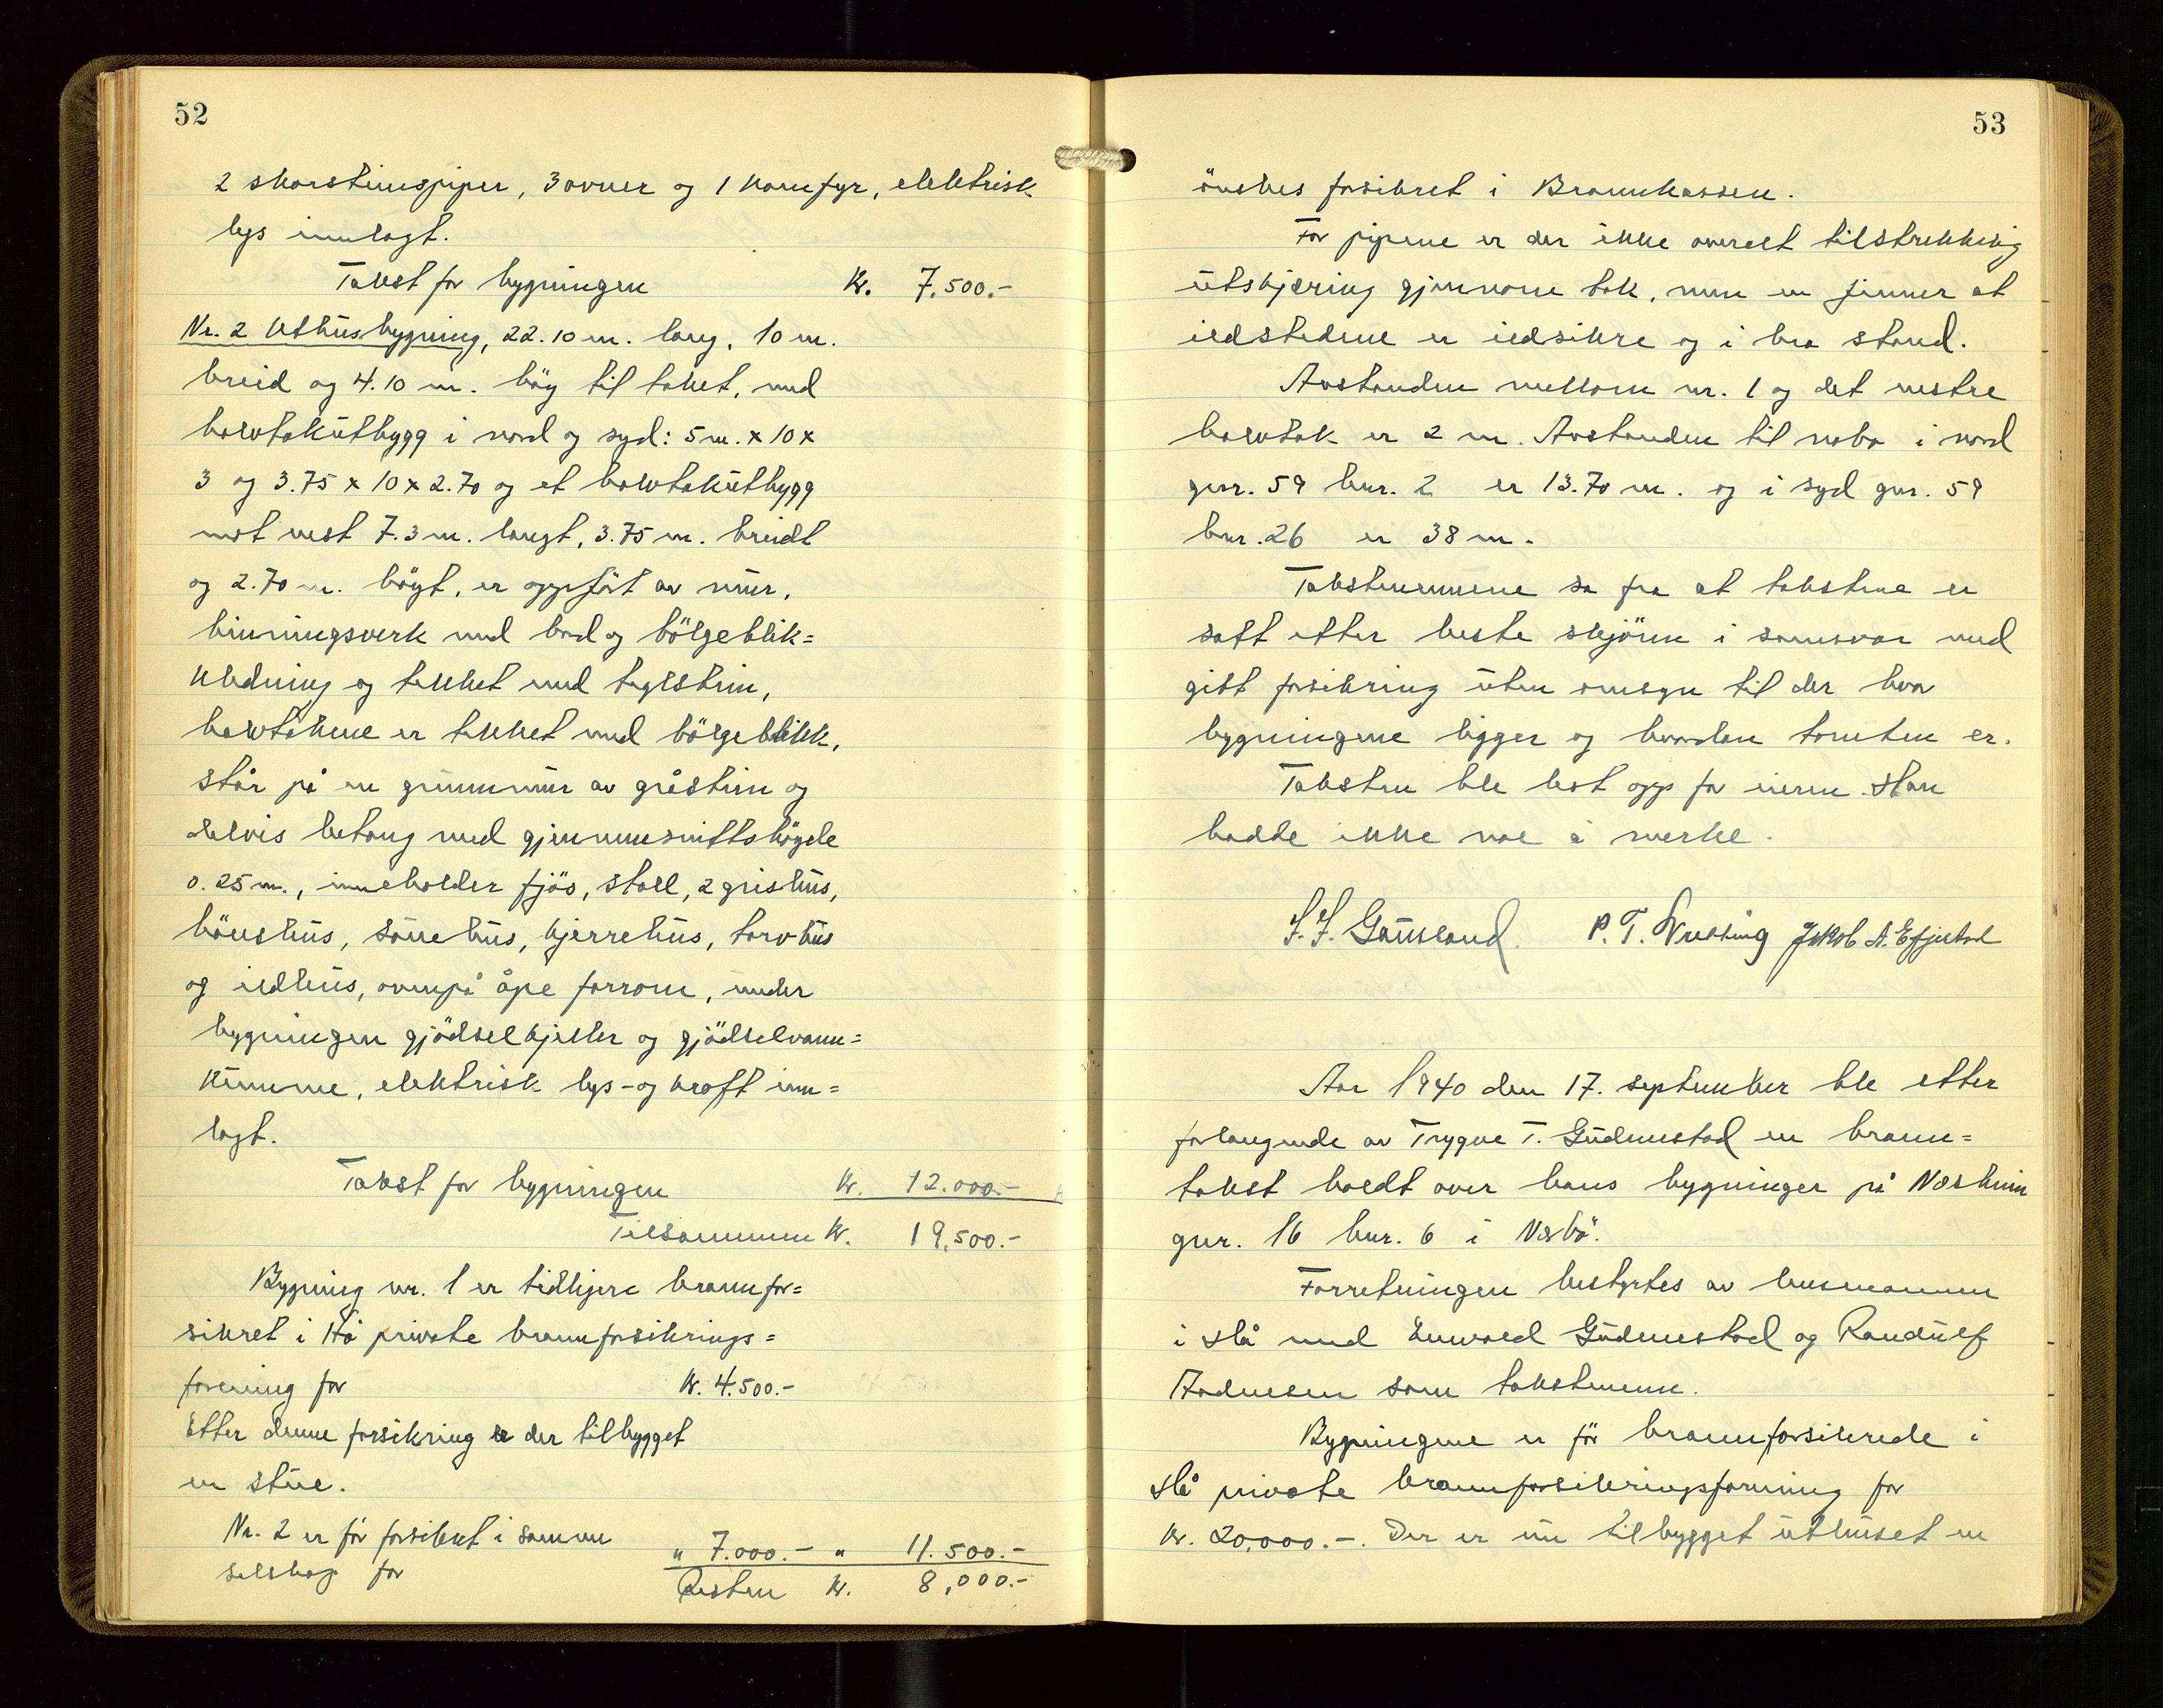 52
2 skorsteinspiper, 3 ovner og 1 komfyr, elektrisk
lys innlagt.
Takst for bygningen Kr. 7.500.-
Nr. 2 Uthusbygning, 22.10 m. lang, 10 m.
breid og 4.10 m. høg til taket, med
halvtakutbygg i nord og syd: 5 m. x 10 x
3 og 3.75 x 10 x 2.70 og et halvtakutbygg
mot vest 7.3 m. langt, 3.75 m. breidt
og 2.70 m. högt, er oppfört av mur,
binningsverk med bord og bölgeblik=
kledning og tekket med teglstein,
halvtakene er tekket med bölgeblikk,
står på en grunnmur av gråstein og
delvis betong med gjennomsnittshögde
0.25 m., inneholder fjös, stall, 2 grishus,
hönshus, sauehus, kjerrehus, torvhus
og ildhus, ovenpå åpe forrom, under
bygningen gjödselkjeller og gjödselvann=
kumme, elektrisk lys- og kraft inn=
lagt.
Takst for bygningen Kr. 12.000.-
Tilsammen Kr. 19,500.-
Bygning nr. 1 er tidligere brannfor=
sikret i Hå private brannforsikrings=
forening for Kr. 4.500.-
Etter denne forsikring er der tilbygget
en stue.
Nr. 2 er för forsikret i samme
selskap for " 7.000.- " 11.500.-
Resten Kr. 8,000.-
53
önskes forsikret i Brannkassen.
For pipene er der ikke overalt tilstrekkelig
utskjæring gjennom tak, men en finner at
ildstedene er ildsikre og i bra stand.
Avstanden mellom nr. 1 og det vestre
halvtak er 2 m. Avstanden til nabo i nord
gnr. 59 bnr. 2 er 13.70 m. og i syd gnr. 59
bnr. 26 er 38 m.
Takstmennene sa fra at takstene er
satt etter beste skjönn i samsvar med
gitt forsikring uten omsyn til der hvor
bygningene ligger og hvordan tomten er.
Taksten ble lest opp for eieren. Han
hadde ikke noe å merke.
S. S. Gausland. P. T. Jakob A.
Aar 1940 den 17. september ble etter
forlangende av Trygve T. Gudmestad en brann=
takst holdt over hans bygninger på Næsheim
gnr. 16 bnr. 6 i Nærbö.
Forretningen bestyrtes av lensmannen
i Hå med Enwald Gudmestad og Randulf
Aadnesen som takstmenn.
Bygningene er för brannforsikrede i
Hå private brannforsikringsforening for
Kr. 20,000.-. Der er nu tilbygget uthuset en